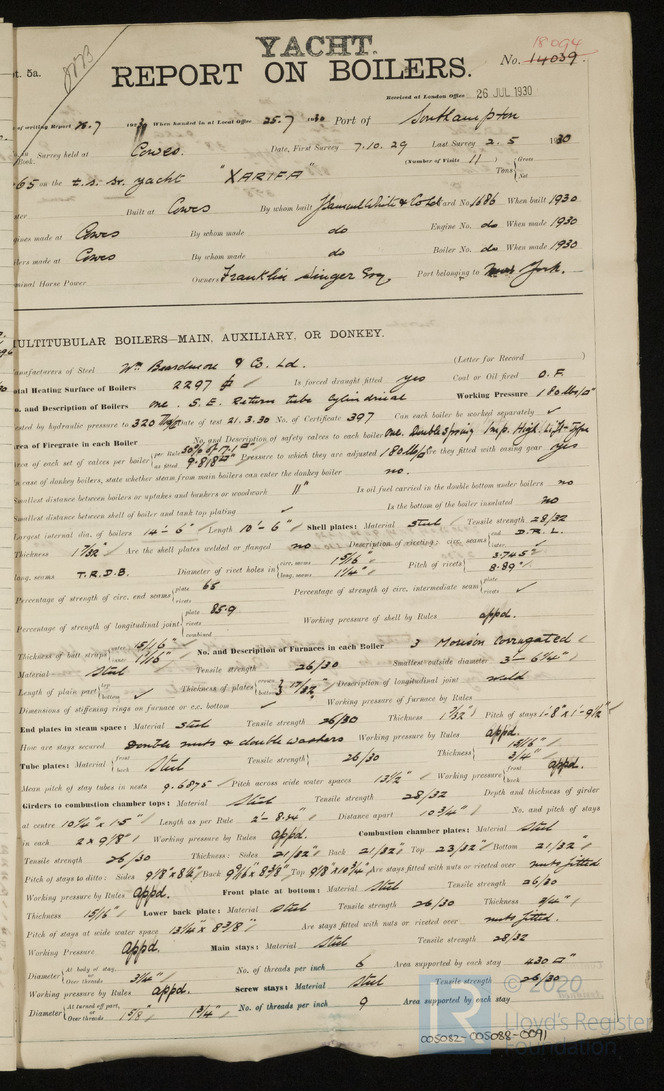 YACHT.
REPORT ON BOILERS.
No. 14039. 18094
pt. 5a.
Received at London Office 26 JUL 1930
of writing Report 26.7 1930 When handed in at Local Office 25.7 1930 Port of Southampton
Book. Survey held at Cowes. Date, First Survey 7.10.29 Last Survey 2.5 1930
(Number of Visits 11) Gross
65 on the t.s. sr. yacht "XARIFA" Tons Net
Built at Cowes By whom built J Samuel White & Co Ltd Yard No. 1686 When built 1930
ines made at Cowes By whom made do Engine No. do When made 1930
lers made at Cowes By whom made do Boiler No. do When made 1930
minal Horse Power Owners Franklin Singer Esq Port belonging to New York.
MULTITUBULAR BOILERS—MAIN, AUXILIARY, OR DONKEY.
Manufacturers of Steel Wm Beardmore & Co. Ld. (Letter for Record )
Total Heating Surface of Boilers 2297 Is forced draught fitted yes Coal or Oil fired O.F
No. and Description of Boilers One. S.E. Return tube Cylindrical Working Pressure 180 lbs/□"
Tested by hydraulic pressure to 320 Date of test 21.3.30 No. of Certificate 397 Can each boiler be worked separately ✓
Area of Firegrate in each Boiler No. and Description of safety valves to each boiler One. Double Spring Imp. High Lift-Type
Area of each set of valves per boiler per Rule as fitted 9.818□" Pressure to which they are adjusted 180 lbs/□" Are they fitted with easing gear yes
In case of donkey boilers, state whether steam from main boilers can enter the donkey boiler no.
Smallest distance between boilers or uptakes and bunkers or woodwork 11" Is oil fuel carried in the double bottom under boilers no
Smallest distance between shell of boiler and tank top plating ✓ Is the bottom of the boiler insulated no
Largest internal dia. of boilers 14'-6" Length 10'-6" Shell plates: Material Steel Tensile strength 28/32
Thickness 1 7/32" Are the shell plates welded or flanged no Description of riveting: circ. seams end D.R.L. inter.
long. seams T.R.D.B. Diameter of rivet holes in circ. seams 1 5/16" long. seams 1 1/4" Pitch of rivets 3.745" 8.89"
Percentage of strength of circ. end seams plate 65 rivets Percentage of strength of circ. intermediate seam plate rivets ✓
Percentage of strength of longitudinal joint plate 85.9 rivets combined Working pressure of shell by Rules appd.
Thickness of butt straps outer 15/16" inner 1 1/16" No. and Description of Furnaces in each Boiler 3 Morison Corrugated
Material Steel Tensile strength 26/30 Smallest outside diameter 3'-6 1/4"
Length of plain part top bottom ✓ Thickness of plates crown bottom 17/32" Description of longitudinal joint weld
Dimensions of stiffening rings on furnace or c.c. bottom ✓ Working pressure of furnace by Rules appd.
End plates in steam space: Material Steel Tensile strength 26/30 Thickness 1 7/32" Pitch of stays 1'-8" x 1'-9 1/2"
How are stays secured Double nuts & double washers Working pressure by Rules appd.
Tube plates: Material front back Steel Tensile strength 26/30 Thickness 15/16" 3/4"
Mean pitch of stay tubes in nests 9.6875 Pitch across wide water spaces 13 1/2" Working pressure front back appd.
Girders to combustion chamber tops: Material Steel Tensile strength 28/32 Depth and thickness of girder
at centre 10 1/4" x 1.5" Length as per Rule 2'-8.24" Distance apart 10 3/4" No. and pitch of stays
in each 2 x 9 1/8" Working pressure by Rules appd. Combustion chamber plates: Material Steel
Tensile strength 26/30 Thickness: Sides 21/32" Back 21/32" Top 23/32" Bottom 21/32"
Pitch of stays to ditto: Sides 9 1/8" x 8 1/2" Back 9 1/16" x 8 3/8" Top 9 1/8" x 10 3/4" Are stays fitted with nuts or riveted over nuts fitted
Working pressure by Rules appd. Front plate at bottom: Material Steel Tensile strength 26/30
Thickness 15/16" Lower back plate: Material Steel Tensile strength 26/30 Thickness 3/4"
Pitch of stays at wide water space 13 1/4" x 8 3/8" Are stays fitted with nuts or riveted over nuts fitted.
Working Pressure appd. Main stays: Material Steel Tensile strength 28/32
Diameter At body of stay, or Over threads 3 1/4" No. of threads per inch 6 Area supported by each stay 430 □"
Working pressure by Rules appd. Screw stays: Material Steel Tensile strength 26/30
Diameter At turned off part, or Over threads 1 5/8" 1 3/4" No. of threads per inch 9 Area supported by each stay
© 2020
Lloyd's Register
Foundation
005082-005088-0091